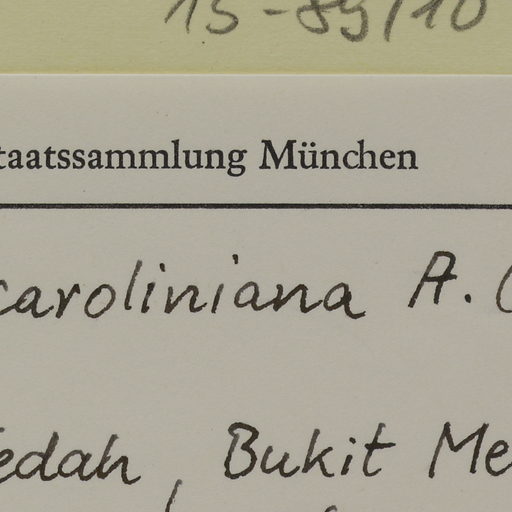 15-89/10
taatssammlung München
caroliniana A.
edah, Bukit Me